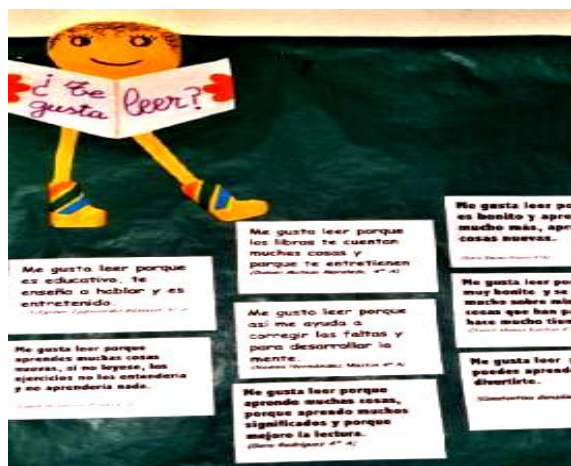 ¿Te
gusta
leer?
Me gusta leer porque
es educativo, te
enseña a hablar y es
entretenido.
Me gusta leer porque
prendes muchas cosas
nuevas, si no leyese, los
ejercicios no los entendería
y no aprendería nada.
Me gusta leer porque
los libros te cuentan
muchas cosas y
porque te entretienen
4º A)
Me gusta leer porque
así me ayuda a
corregir las faltas y
para desarrollar la
mente.
4º A)
Me gusta leer porque
aprendo muchas cosas,
porque aprendo muchos
significados y porque
mejoro la lectura.
(Sara Rodríguez 4º A)
Me gusta leer po
es bonito y apre
mucho más, apr
cosas nuevas.
Me gusta leer por
muy bonito y se
mucho sobre
cosas que han p
hace mucho tie
Me gusta leer
puedes aprend
divertirte.